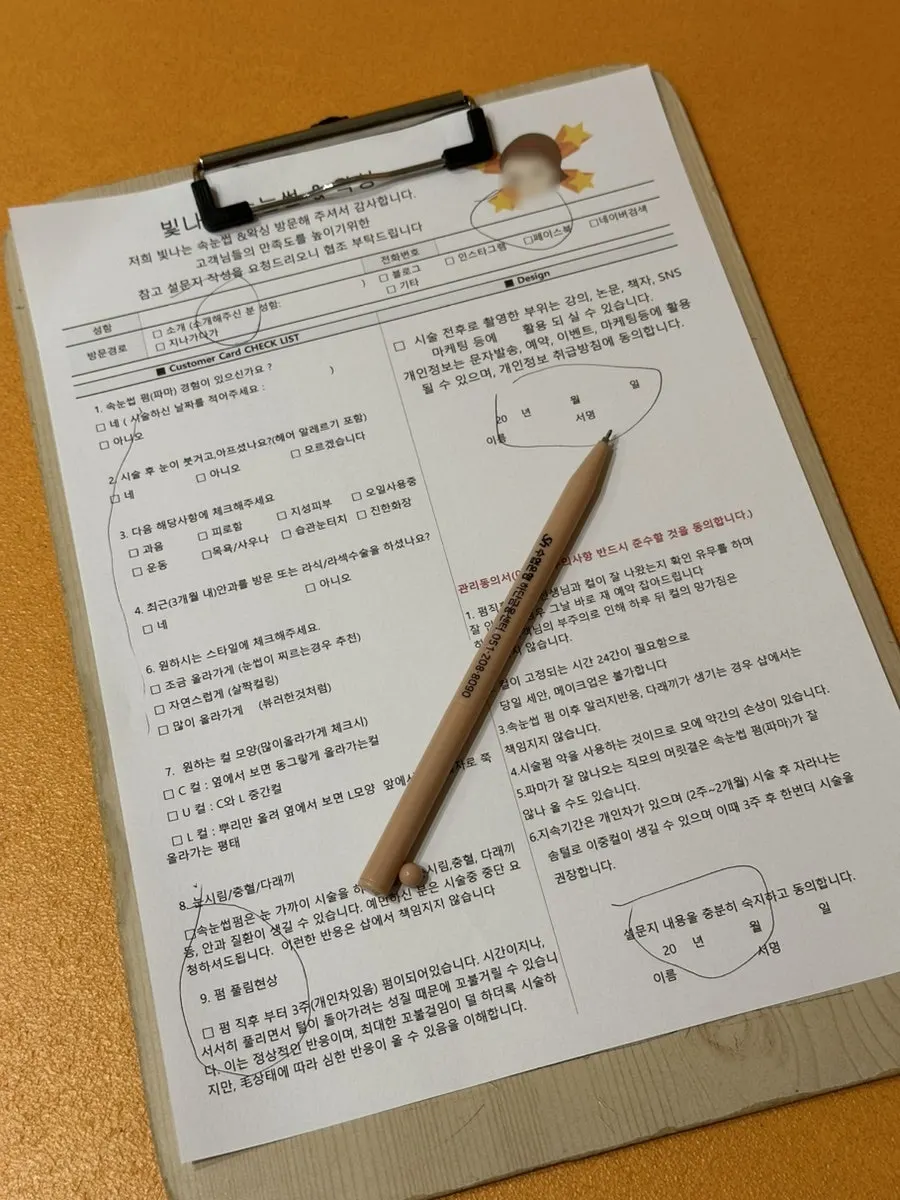 빛나는 속눈썹 & 왁싱
저희 빛나는 속눈썹 &왁싱 방문해 주셔서 감사합니다.
고객님들의 만족도를 높이기위한
참고 설문지 작성을 요청드리오니 협조 부탁드립니다
성함
전화번호
방문경로
□ 소개 (소개해주신 분 성함: )
□ 블로그
□ 인스타그램
□페이스북
□네이버검색
□ 지나가다가
□ 기타
■ Customer Card CHECK LIST
1. 속눈썹 펌(파마) 경험이 있으신가요 ?
□ 네 ( 시술하신 날짜를 적어주세요 : )
□ 아니오
2. 시술 후 눈이 붓거고,아프셨나요?(헤어 알레르기 포함)
□ 네 □ 아니오 □ 모르겠습니다
3. 다음 해당사항에 체크해주세요
□ 과음 □ 피로함 □ 지성피부 □ 오일사용중
□ 운동 □목욕/사우나 □ 습관눈터치 □ 진한화장
4. 최근(3개월 내)안과를 방문 또는 라식/라섹수술을 하셨나요?
□ 네 □ 아니오
6. 원하시는 스타일에 체크해주세요.
□ 조금 올라가게 (눈썹이 찌르는경우 추천)
□ 자연스럽게 (살짝컬링)
□ 많이 올라가게 (뷰러한것처럼)
7. 원하는 컬 모양(많이올라가게 체크시)
□ C 컬 : 옆에서 보면 동그랗게 올라가는컬
□ U 컬 : C와 L 중간컬
□ L 컬 : 뿌리만 올려 옆에서 보면 L모양 앞에서 자로 쭉
올라가는 형태
8. 눈시림/충혈/다래끼
□속눈썹펌은 눈 가까이 시술을 하 시림,충혈, 다래끼
등, 안과 질환이 생길 수 있습니다. 예민하신 분은 시술중 중단 요
청하셔도됩니다. 이런한 반응은 샵에서 책임지지 않습니다
9. 펌 풀림현상
□ 펌 직후 부터 3주(개인차있음) 펌이되어있습니다. 시간이지나,
서서히 풀리면서 털이 돌아가려는 성질 때문에 꼬불거릴 수 있습니
다. 이는 정상적인 반응이며, 최대한 꼬불걸임이 덜 하더록 시술하
지만, 毛상태에 따라 심한 반응이 올 수 있음을 이해합니다.
■ Design
□ 시술 전후로 촬영한 부위는 강의, 논문, 책자, SNS
마케팅 등에 활용 되 실 수 있습니다.
개인정보는 문자발송, 예약, 이벤트, 마케팅등에 활용
될 수 있으며, 개인정보 취급방침에 동의합니다.
20 년 월 일
이름 서명
관리동의서( 의사항 반드시 준수할 것을 동의합니다.)
1. 펌직 선생님과 컬이 잘 나왔는지 확인 유무를 하며
잘 그날 바로 재 예약 잡아드립니다
객님의 부주의로 인해 하루 뒤 컬의 망가짐은
지 않습니다.
컬이 고정되는 시간 24간이 필요함으로
당일 세안, 메이크업은 불가합니다
3.속눈썹 펌 이후 알러지반응, 다래끼가 생기는 경우 샵에서는
책임지지 않습니다.
4.시술펌 약을 사용하는 것이므로 모에 약간의 손상이 있습니다.
5.파마가 잘 않나오는 직모의 머릿결은 속눈썹 펌(파마)가 잘
않나 올 수도 있습니다.
6.지속기간은 개인차가 있으며 (2주~2개월) 시술 후 자라나는
솜털로 이중컬이 생길 수 있으며 이때 3주 후 한번더 시술을
권장합니다.
설문지 내용을 충분히 숙지하고 동의합니다.
20 년 월 일
이름 서명
Sh수협은행 하단금융센터 051-208-8090